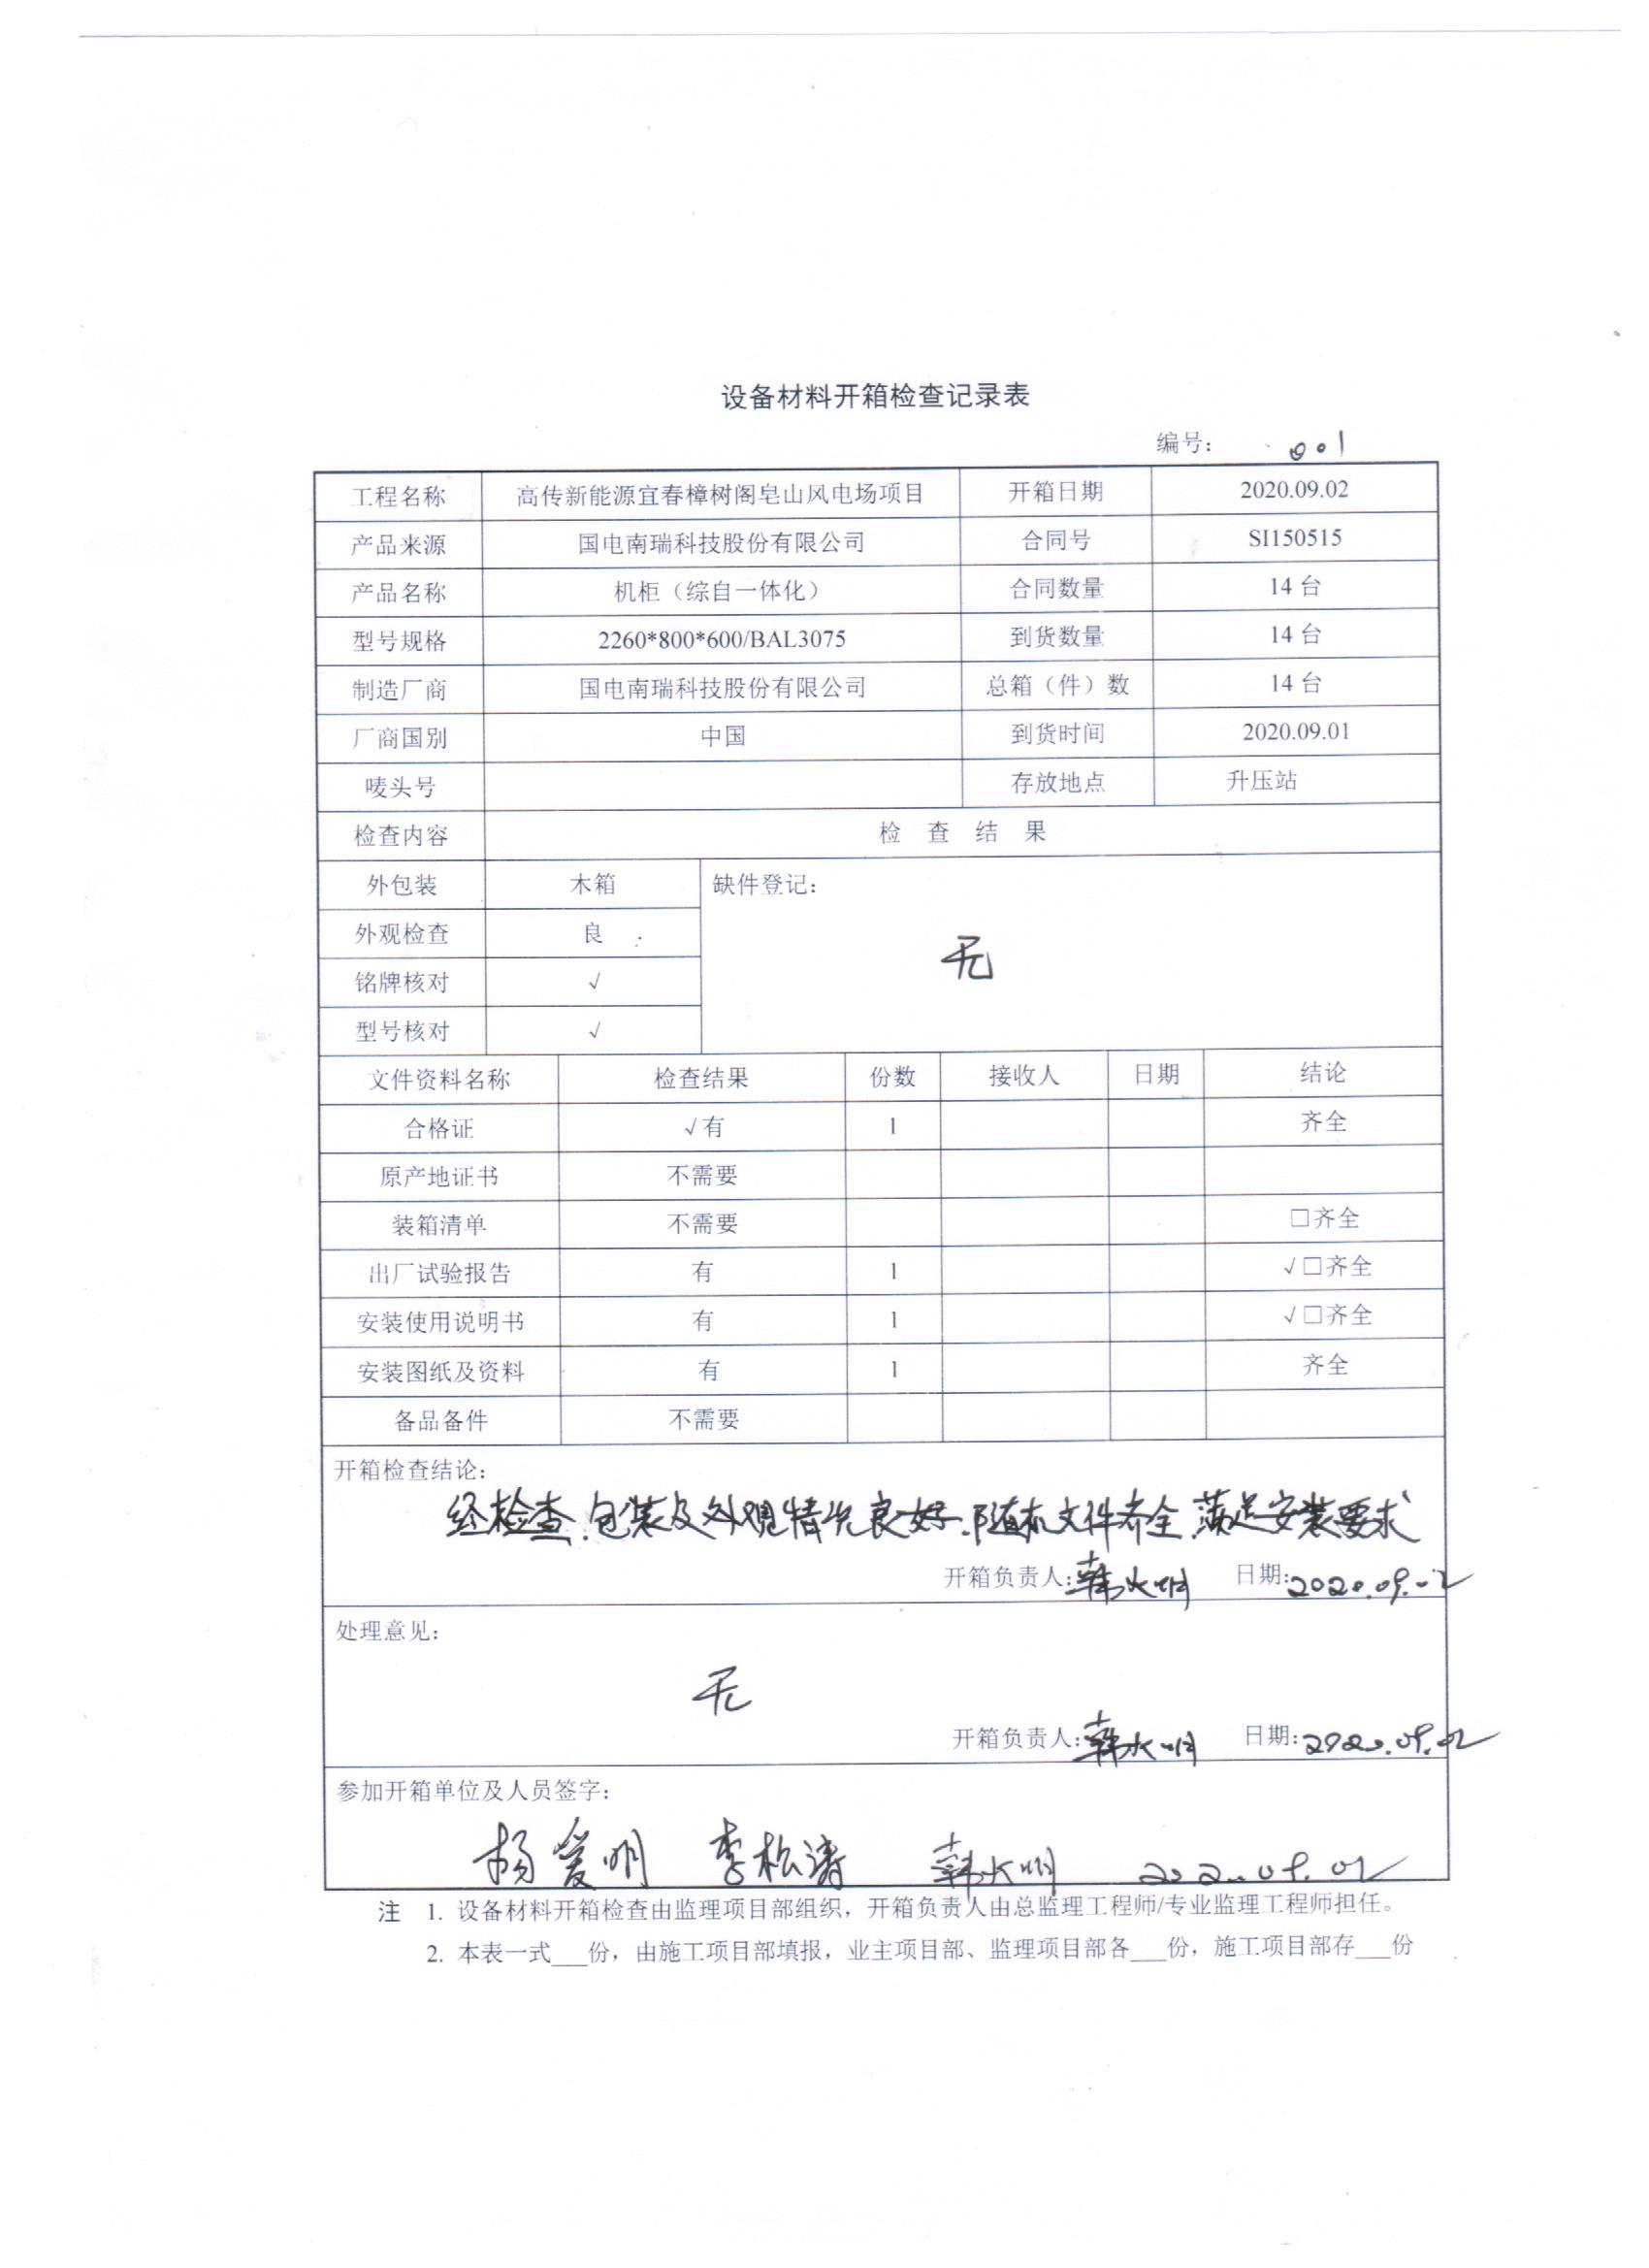 设备材料开箱检查记录表
编号： 001
工程名称 高传新能源宜春樟树阁皂山风电场项目 开箱日期 2020.09.02
产品来源 国电南瑞科技股份有限公司 合同号 SI150515
产品名称 机柜（综自一体化） 合同数量 14 台
型号规格 2260*800*600/BAL3075 到货数量 14 台
制造厂商 国电南瑞科技股份有限公司 总箱（件）数 14 台
厂商国别 中国 到货时间 2020.09.01
唛头号 存放地点 升压站
检查内容 检 查 结 果
外包装 木箱 缺件登记：
外观检查 良
无
铭牌核对 √
型号核对 √
文件资料名称 检查结果 份数 接收人 日期 结论
合格证 √有 1 齐全
原产地证书 不需要
装箱清单 不需要 □齐全
出厂试验报告 有 1 √□齐全
安装使用说明书 有 1 √□齐全
安装图纸及资料 有 1 齐全
备品备件 不需要
开箱检查结论：
经检查.包装及外观情况良好.随机文件齐全.满足安装要求
开箱负责人： 日期：2020.09.02
处理意见：
无
开箱负责人： 日期：2020.09.02
参加开箱单位及人员签字：
杨爱明 李松涛 2020.09.02
注 1. 设备材料开箱检查由监理项目部组织，开箱负责人由总监理工程师/专业监理工程师担任。
2. 本表一式___份，由施工项目部填报，业主项目部、监理项目部各___份，施工项目部存___份